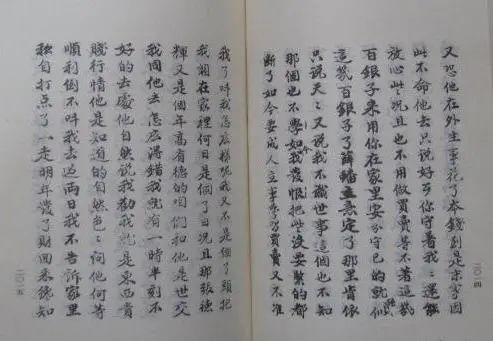 又恐他在外生事花了本錢倒是末事因
此不命他去只說好歹你守着我〻還能
放心些〻況且也不用做買賣等不着這幾
百銀子来用你在家里安分守已的就似
這幾百銀子了薛蟠主意定了那里肯依
只說天〻又說我不識世事這個也不知
那個也不學如今我發恨把些沒要緊的都
斷了如今要成人立事學習買賣又不准
二〇一四
我了叫我怎庅樣呢我又不是個丫頭把
我關在家裡何日是個了日況且那張德
輝又是個年高有德的咱们和他是世交
我同他去怎庅得錯我就有一時半刻不
好的去處他自然說我勸我就是東西貴
賤行情他是知道的自然色〻問他何等
順利倒不叫我去过兩日我不告訴家里
私自打点了一走明年發了財回来終知
二〇一五